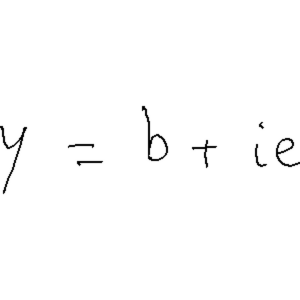 y = b + ie